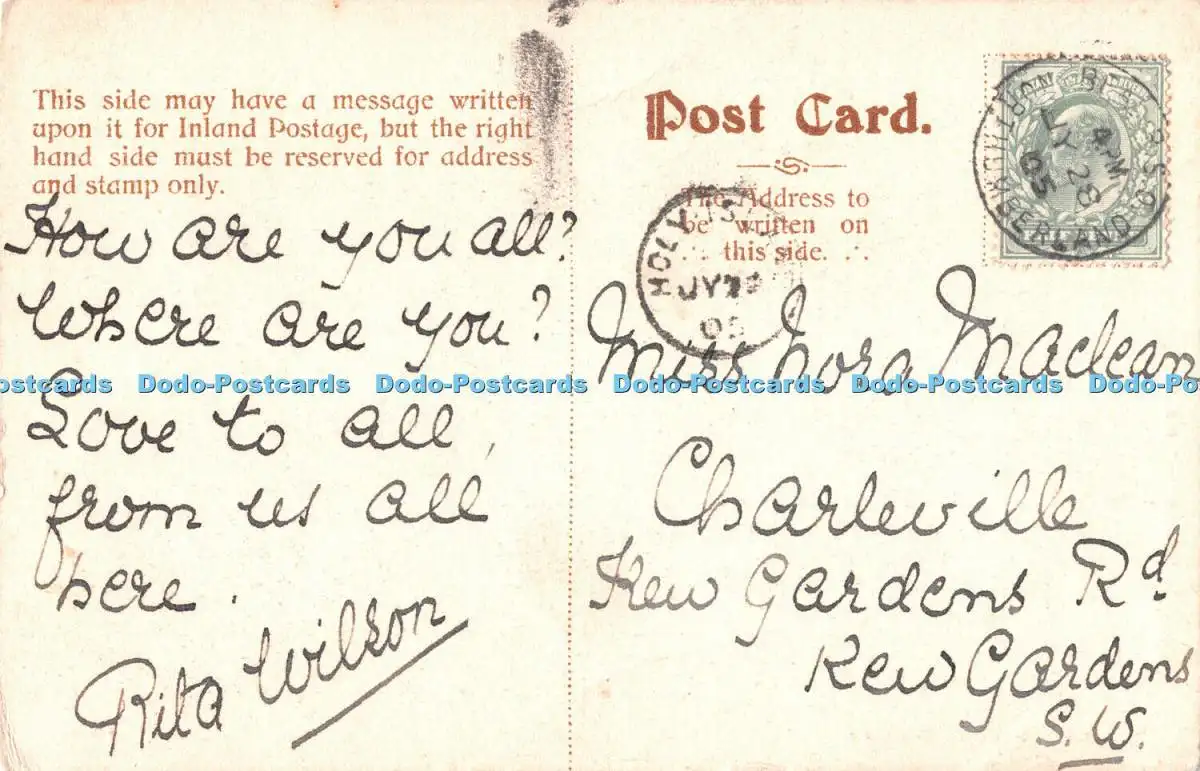 This side may have a message written
upon it for Inland Postage, but the right
hand side must be reserved for address
and stamp only.
How are you all?
Where are you?
Love to all,
from us all
here.
Rita Wilson
Post Card.
The Address to
be written on
this side.
HOLY
JY
05
4 PM
JY 28
05
Miss Nora Maclean
Charleville
Kew Gardens Rd
Kew Gardens
S.W.
Dodo-Postcards Dodo-Postcards Dodo-Postcards Dodo-Postcards Dodo-Postcards